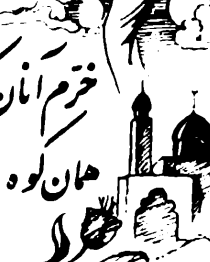 خرّم آنان
همان کوه